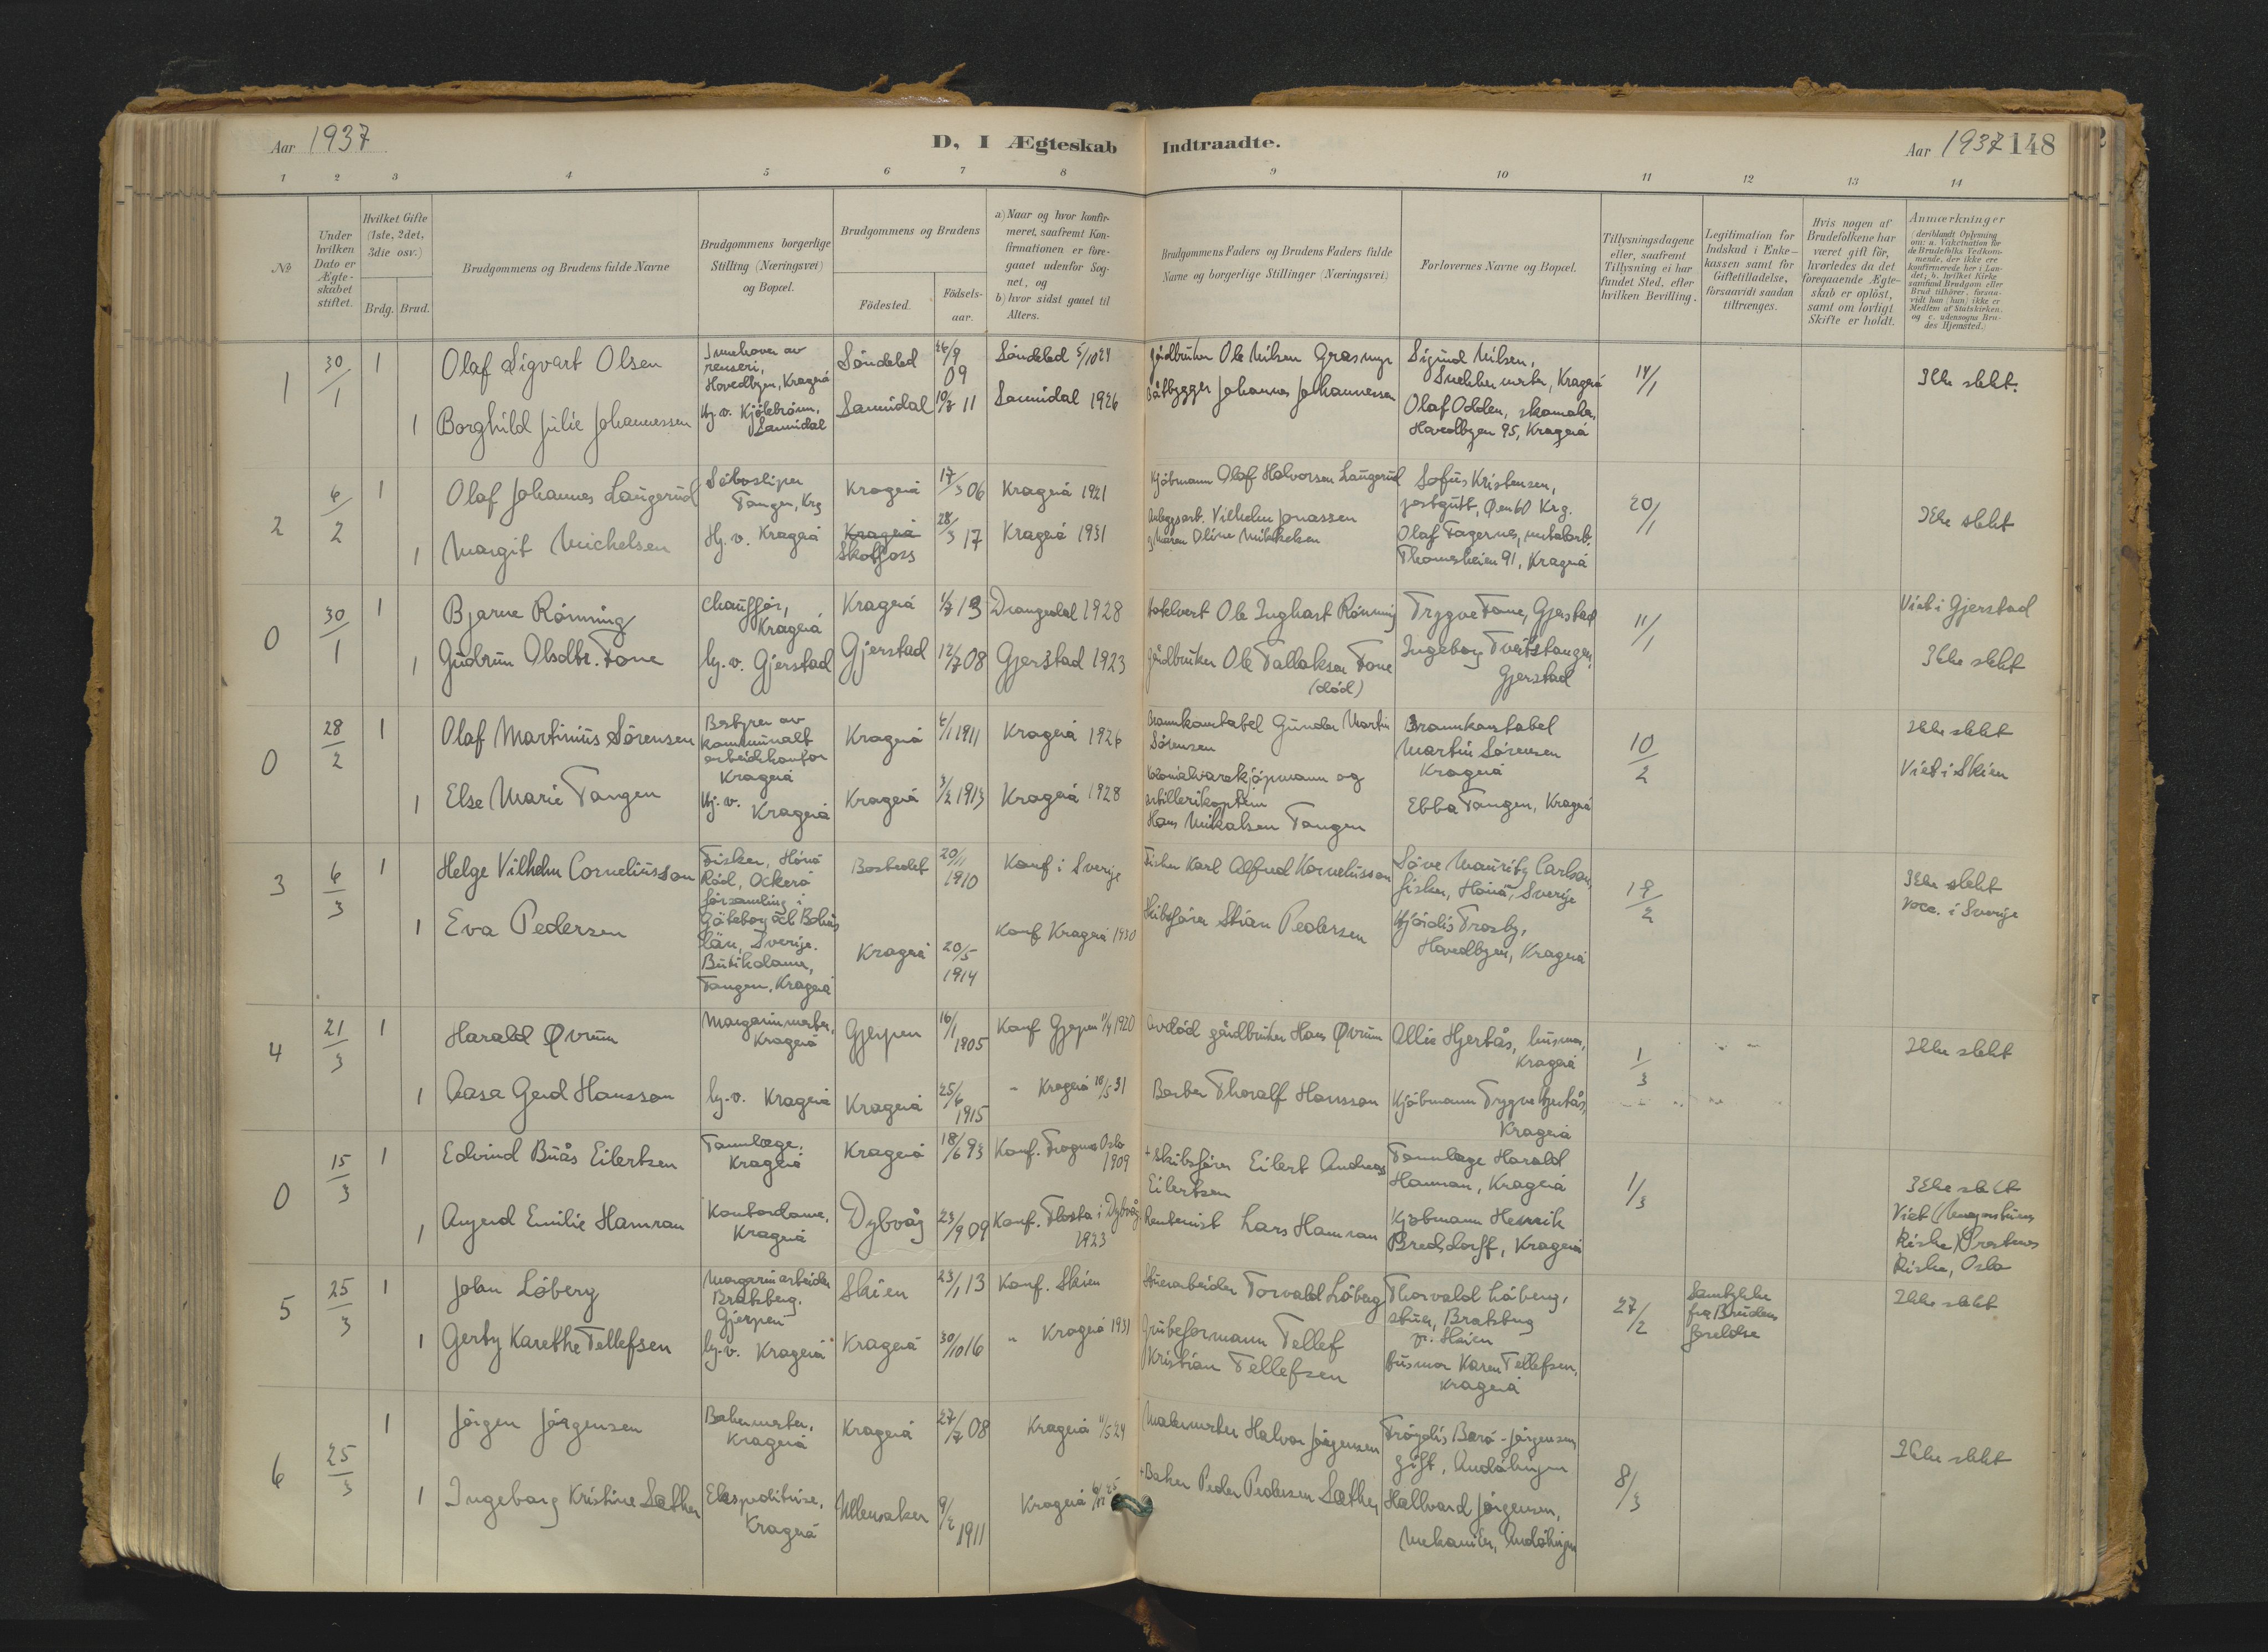 Aar 1937
D, I Ægteskab Indtraadte.
Aar 1937 148
1 2 3 4 5 6 7 8 9 10 11 12 13 14
№
Under hvilken Dato er Ægteskabet stiftet.
Hvilket Gifte (1ste, 2det, 3die osv.)
Brdg. Brud.
Brudgommens og Brudens fulde Navne
Brudgommens borgerlige Stilling (Næringsvei) og Bopæl.
Brudgommens og Brudens
Födested.
Födsels-aar.
a) Naar og hvor konfir-
meret, saafremt Kon-
firmationen er fore-
gaaet udenfor Sog-
net, og
b) hvor sidst gaaet til
Alters.
Brudgommens Faders og Brudens Faders fulde
Navne og borgerlige Stillinger (Næringsvei)
Forlovernes Navne og Bopæl.
Tillysningsdagene
eller, saafremt
Tillysning ei har
fundet Sted, efter
hvilken Bevilling.
Legitimation for
Indskud i Enke-
kassen samt for
Giftetilladelse,
forsaavidt saadan
tiltrænges.
Hvis nogen af
Brudefolkene har
været gift för,
hvorledes da det
foregaaende Ægte-
skab er oplöst,
samt om lovligt
Skifte er holdt.
Anmærkninger
(deriblandt Oplysning
om: a. Vakcination for
de Brudefolks Vedkom-
mende, der ikke ere
konfirmerede her i Lan-
det; b. hvilket Kirke
samfund Brudgom eller
Brud tilhörer, forsaa-
vidt han (hun) ikke er
Medlem af Statskirken.
og c. udensogns Bru-
des Hjemsted.)
1 30/1 1 Olaf Sigvart Olsen
Innehaver av renseri, Hovedbyen, Kragerø
Söndeled 09 Söndeled 5/10 24
gårdbruker Ole Nilsen Grasmyr
Sigurd Nilsen,
Kragerø
14/1
Ikke slekt.
1 Borghild Julie Johannessen
Hj. v. Kjölebrönn, Sannidal
Sannidal 11 Sannidal 1926
Båtbygger Johannes Johannessen
Olaf Odden,
Hovedbyen 95, Kragerö
2 6/2 1 Olaf Johannes Laugerud
Tangen, Krg
Kragerö 17/3 06 Kragerö 1921
Kjöbmann Olaf Halvorsen Laugerud
Sofus Kristensen,
postgutt, Øen 60 Krg.
20/1
Ikke slekt
1 Margit Michelsen
Hj. v. Kragerö
Kragerö Skotfoss 28/3 17 Kragerö 1931
Anleggsarb. Vilhelm Jonassen
g Maren Oline Mikkelsen
Olaf Fagernes, metalarb.
Thomesheien 91, Kragerö
0 30/1 1 Bjarne Rönning
Chaufför, Kragerö
Kragerö 13 Drangedal 1928
Hotelvert Ole Inghart Rönning
Trygve Fone, Gjerstad
11/1
Viet i Gjerstad
1 Gudrun Olsdtr. Fone
hj. v. Gjerstad
Gjerstad 12/7 08 Gjerstad 1923
Gårdbruker Ole Tallaksen Fone
(död)
Ingeborg Tveitstangen,
Gjerstad
Ikke slekt
0 28/2 1 Olaf Martinius Sörensen
Bestyrer av
kommunalt
arbeidskontor
Kragerö
Kragerö 1911 Kragerö 1926
Brannkonstabel Gunder Martin
Sörensen
Brannkonstabel
Martin Sörensen
Kragerö
10/2
Ikke slekt
Viet i Skien
1 Else Marie Tangen
Hj. v. Kragerö
Kragerö 3/2 1913 Kragerö 1928
Kolonialvarekjöpmann og
artillerikaptein
Hans Mikalsen Tangen
Ebba Tangen, Kragerö
3 6/3 1 Helge Vilhelm Corneliusson
Fisker, Hönö
Röd, Ockerö
församling i
Göteborg och Bohus
län, Sverige.
20/11 1910 Konf i Sverige
Fisker Karl Alfred Kornelüsson
Söve Mauritz Carlson,
fisker, Hönö, Sverige
Ikke slekt
vacc. i Sverige
1 Eva Pedersen
Butikdame,
Tangen, Kragerö
Kragerö 20/5 1914 Konf Kragerö 1930
Skibsförer Stian Pedersen
Hjördis Trosby,
Hovedbyen, Kragerö
4 21/3 1 Harald Qvrum
Margarinmester,
Kragerö
Gjerpen 16/1 1905 Konf Gjerpen 11/4 1920
Avdöd gårdbruker Hans Qvrum
Allie Hjertås, husmor,
Kragerö
1/3
Ikke slekt
1 Aasa Gerd Hansson
hj. v. Kragerö
Kragerö 25/6 1915 " Kragerö 10/5 31
Barber Thoralf Hansson
Kjöbmann Trygve Hjertås,
Kragerö
0 15/3 1 Edvind Buås Eilertsen
Tannlæge,
Kragerö
Kragerö 18/6 93 Konf. Frogner Oslo 1909
+ skibsförer Eilert Andreas
Eilertsen
Tannlæge Harald
Hamran, Kragerö
1/3
Ikke slekt
1 Augend Emilie Hamran
Kontordame,
Kragerö
Dybvåg 23/9 09 Konf. Flosta i Dybvåg 1923
Rentenist Lars Hamran
Kjöbmann Henrik
Bredsdorff, Kragerö
Kirke, Oslo
5 25/3 1 John Löberg
Margarinarbeider
Bratsberg.
Gjerpen
Skien 23/1 13 Konf. Skien
Stuerarbeider Torvald Löberg
Thorvald Löberg,
stuer, Bratsberg
pr. Skien
27/2
Samtykke
fra Brudens
foreldre
Ikke slekt
1 Gerty Karethe Tellefsen
hj. v. Kragerö
Kragerö 30/10 16 " Kragerö 1931
Grubeformann Tellef
Kristian Tellefsen
Husmor Karen Tellefsen,
Kragerö
6 25/3 1 Jörgen Jörgensen
Bakermester,
Kragerö
Kragerö 27/7 08 Kragerö 11/5 24
Malermester Halvor Jörgensen
Frögdis Barö-Jörgensen
gift,
8/3
Ikke slekt
1 Ingeborg Kristine Sæther
Ekspeditrise,
Kragerö
Ullensaker 1911 Kragerö
+ Baker Peder Pedersen Sæther
Hallvard Jörgensen,
Mekaniker,